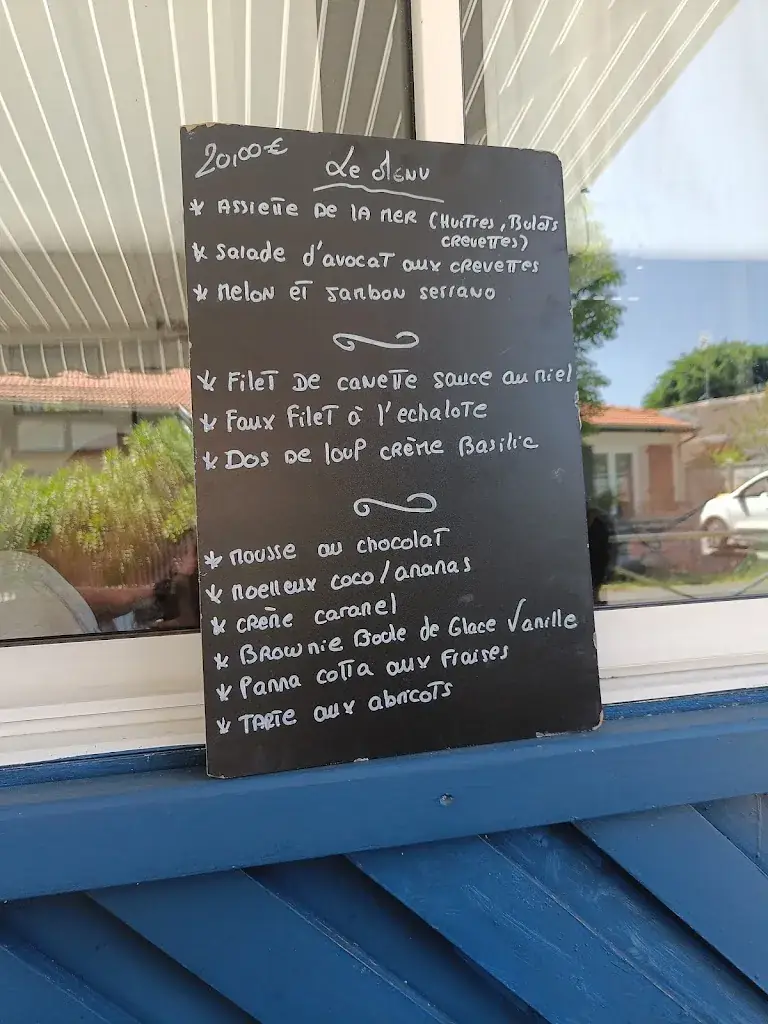 20,00€
Le Menu
* Assiette de la mer (Huitres, Bulots
crevettes)
* Salade d'avocat aux crevettes
* Melon et Jambon serrano
* Filet de canette sauce au miel
* Faux Filet à l'echalote
* Dos de loup crème Basilic
* Mousse au chocolat
* Moelleux coco/ananas
* Crème caramel
* Brownie Boule de Glace Vanille
* Panna cotta aux Fraises
* Tarte aux abricots